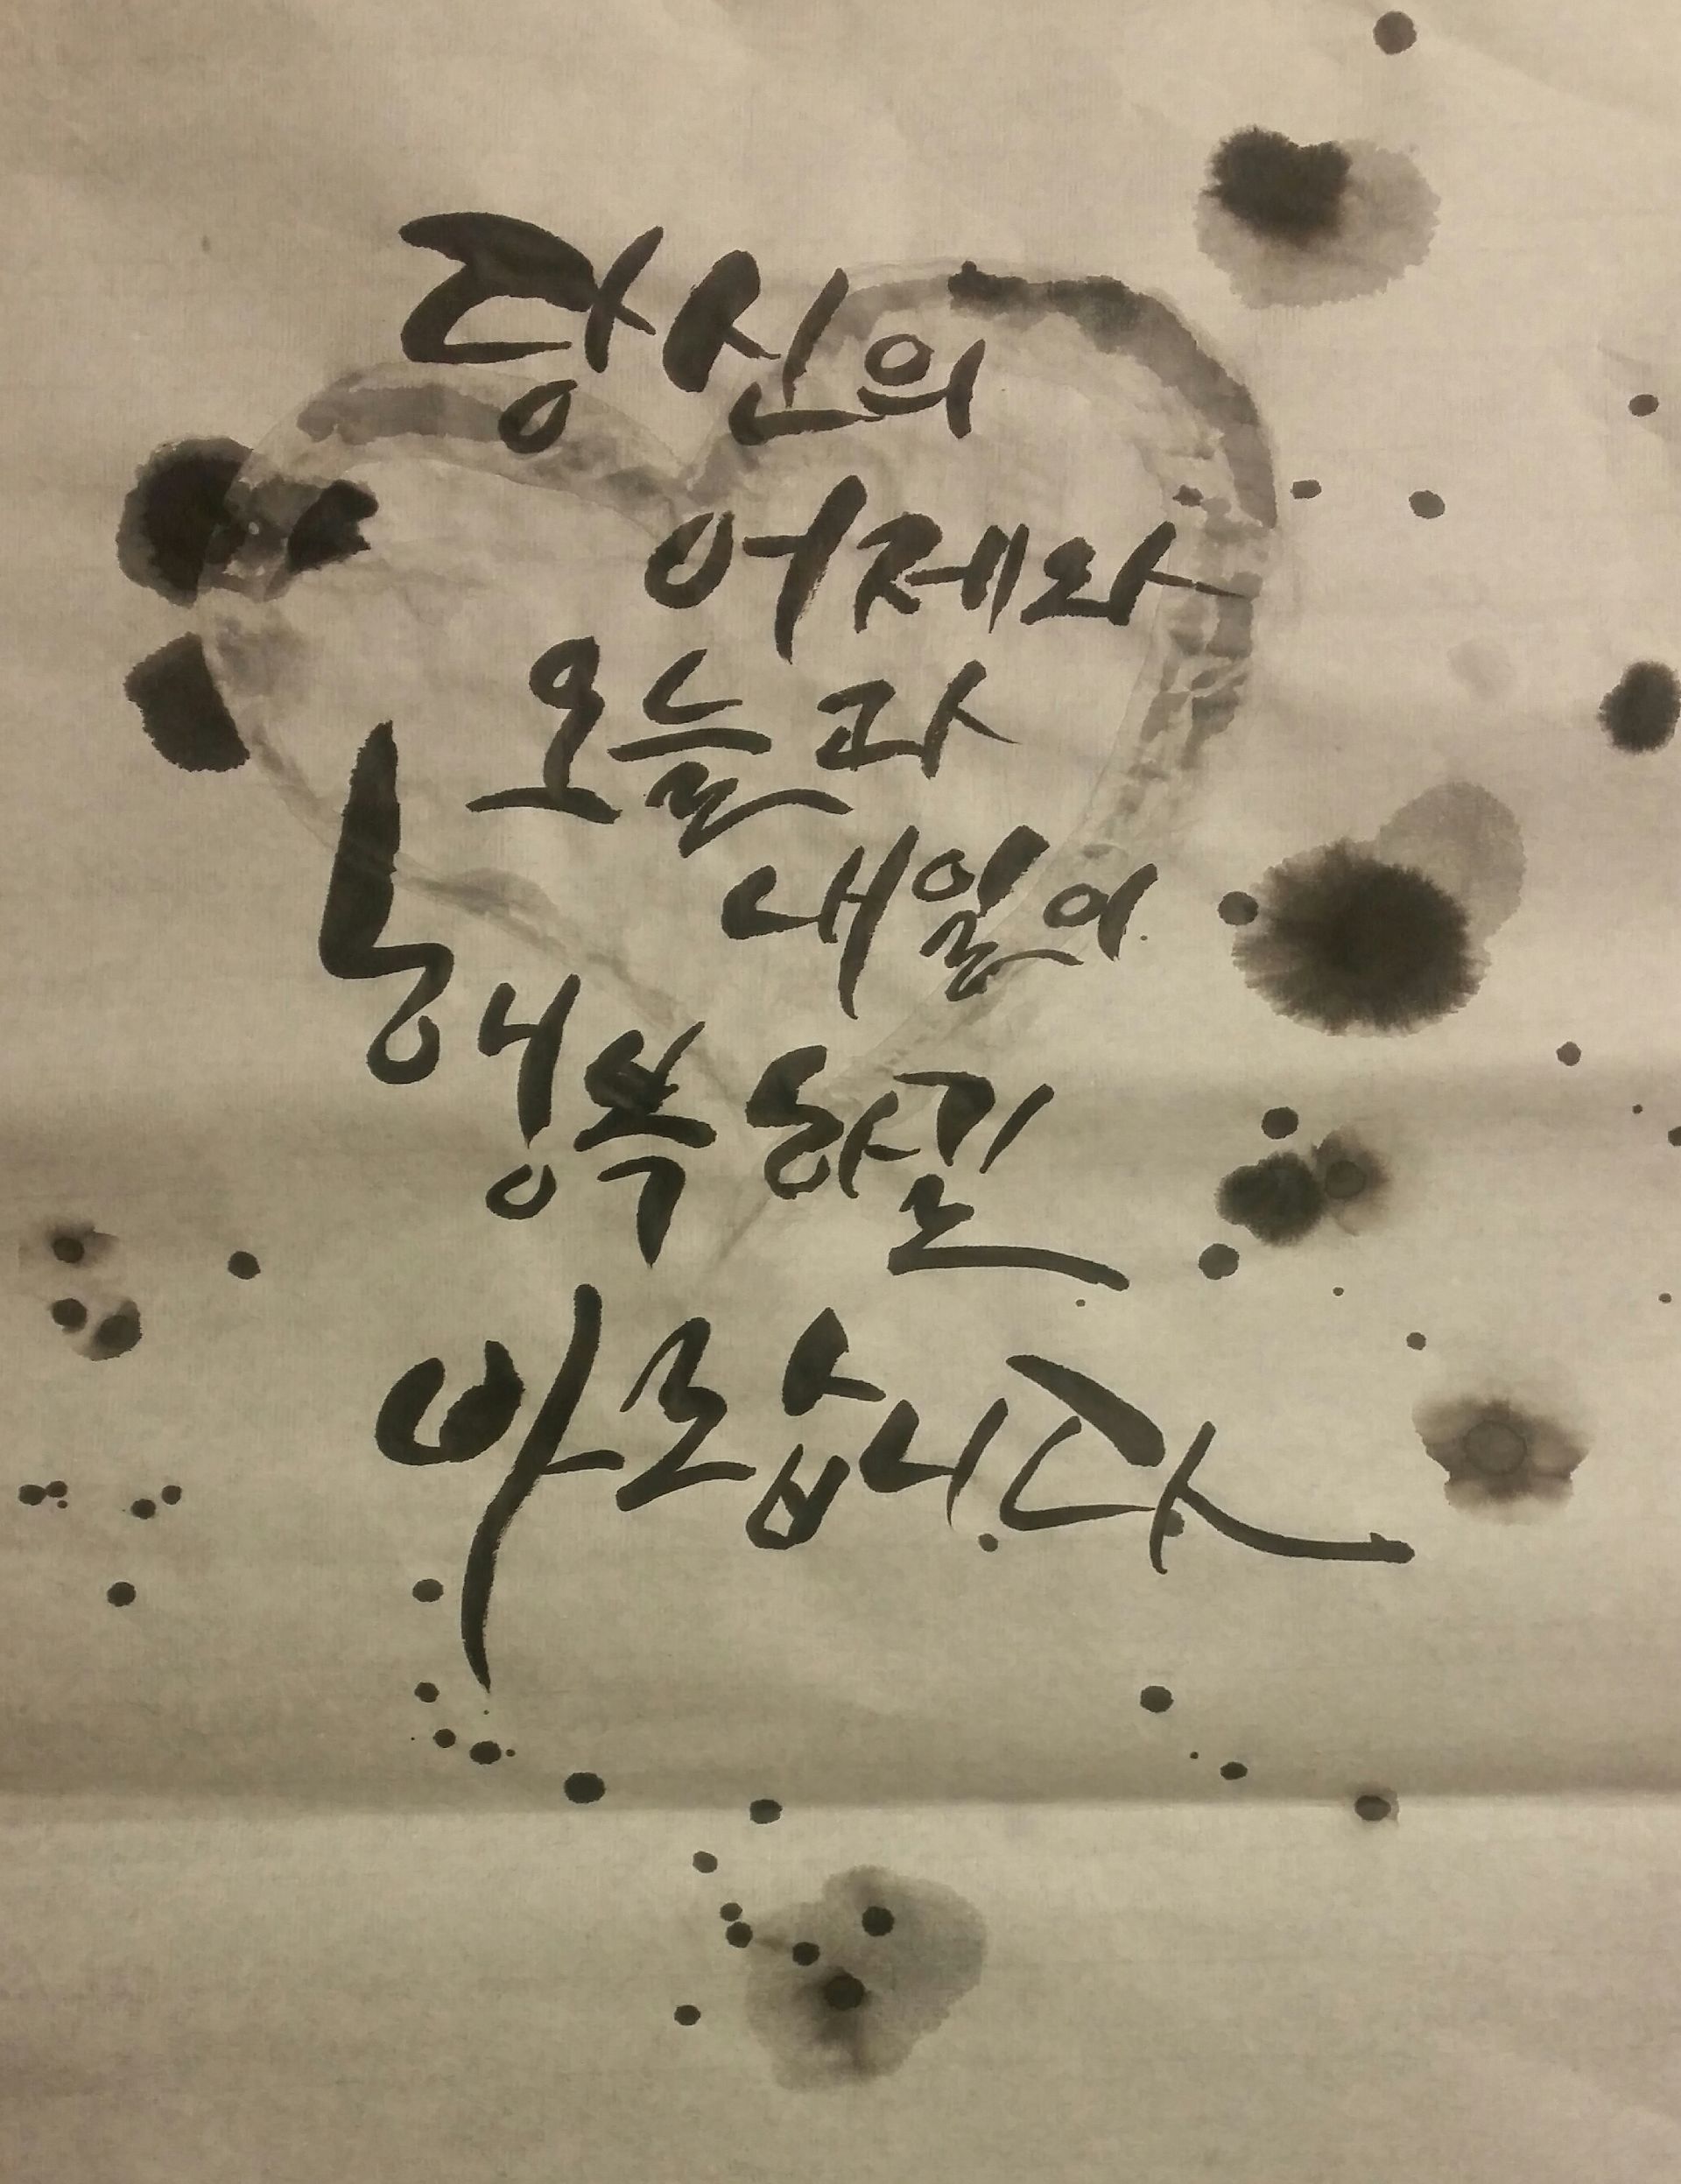 당신의
어제와
오늘과
내일이
행복하길
바르십니다